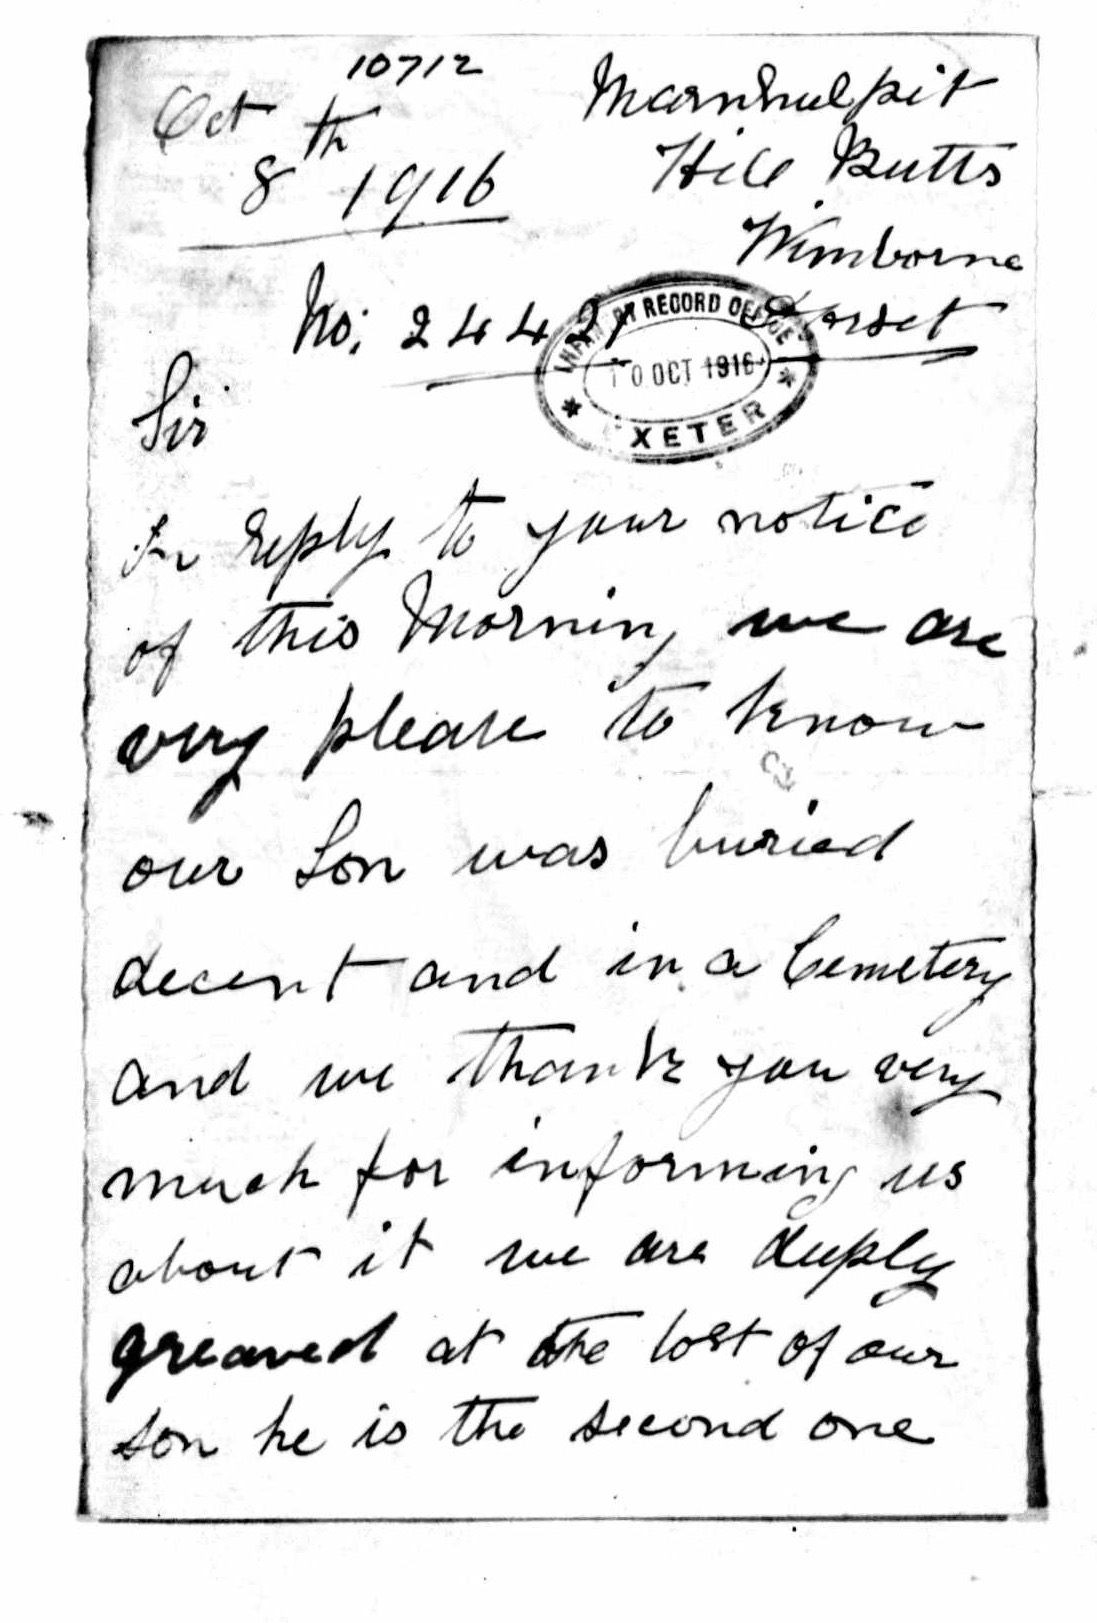 10712
Oct
8th 1916
Marnhulpit
Hill Butts
Wimborne
Dorset
No; 2442
INFANTRY RECORD OFFICE
10 OCT 1916
EXETER
Sir
In reply to your notice
of this Morning we are
very please to know
our Son was buried
decent and in a Cemetery
and we thank you very
much for informing us
about it we are deeply
greaved at the lost of our
son he is the second one